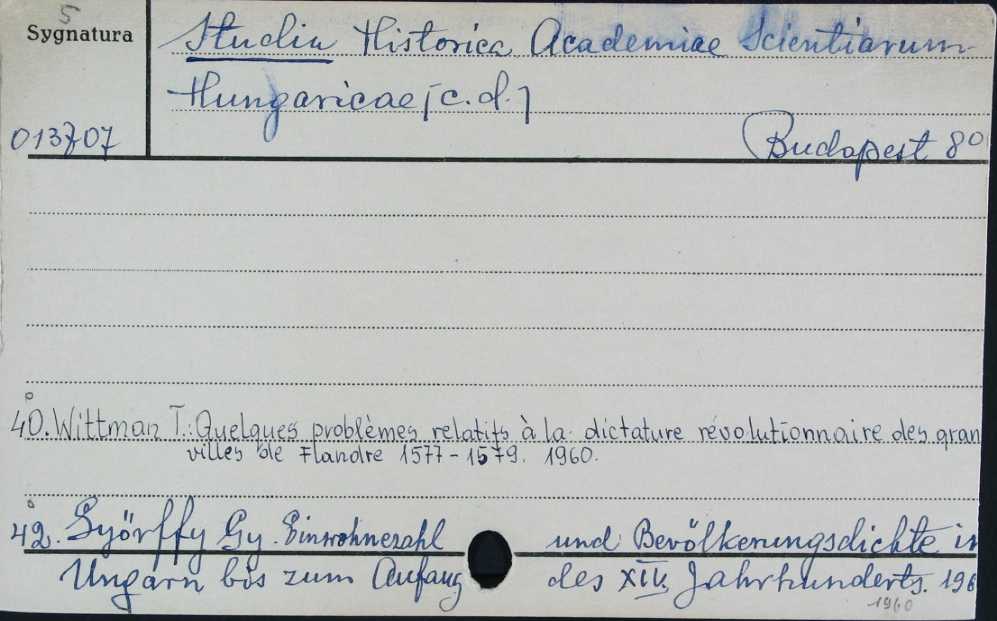 5
Sygnatura
Studia Historica Academiae Scientiarum
Hungaricae [c.d.]
013707
Budapest 80
40. Wittman T.: Quelques problèmes relatifs à la dictature révolutionnaire des gran
villes de Flandre 1577-1579. 1960.
42. Györffy Gy. Einwohnezahl und Bevölkerungsdichte in
Ungarn bis zum Anfang des XIV. Jahrhunderts. 196
1960